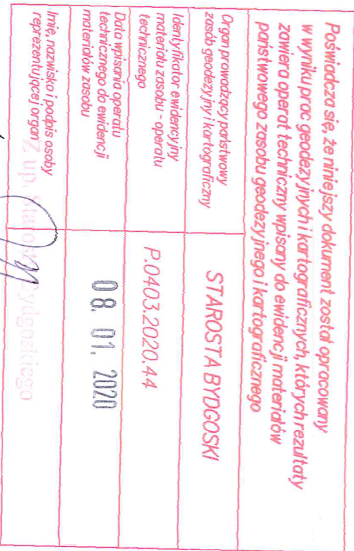 Poświadcza się, że niniejszy dokument został opracowany
w wyniku prac geodezyjnych i kartograficznych, których rezultaty
zawiera operat techniczny wpisany do ewidencji materiałów
państwowego zasobu geodezyjnego i kartograficznego
Organ prowadzący państwowy
zasób geodezyjny i kartograficzny
STAROSTA BYDGOSKI
Identyfikator ewidencyjny
materiału zasobu - operatu
technicznego
P.0403.2020.44
Data wpisania operatu
technicznego do ewidencji
materiałów zasobu
08. 01. 2020
Imię, nazwisko i podpis osoby
reprezentującej organ
Z up. Bydgoskiego